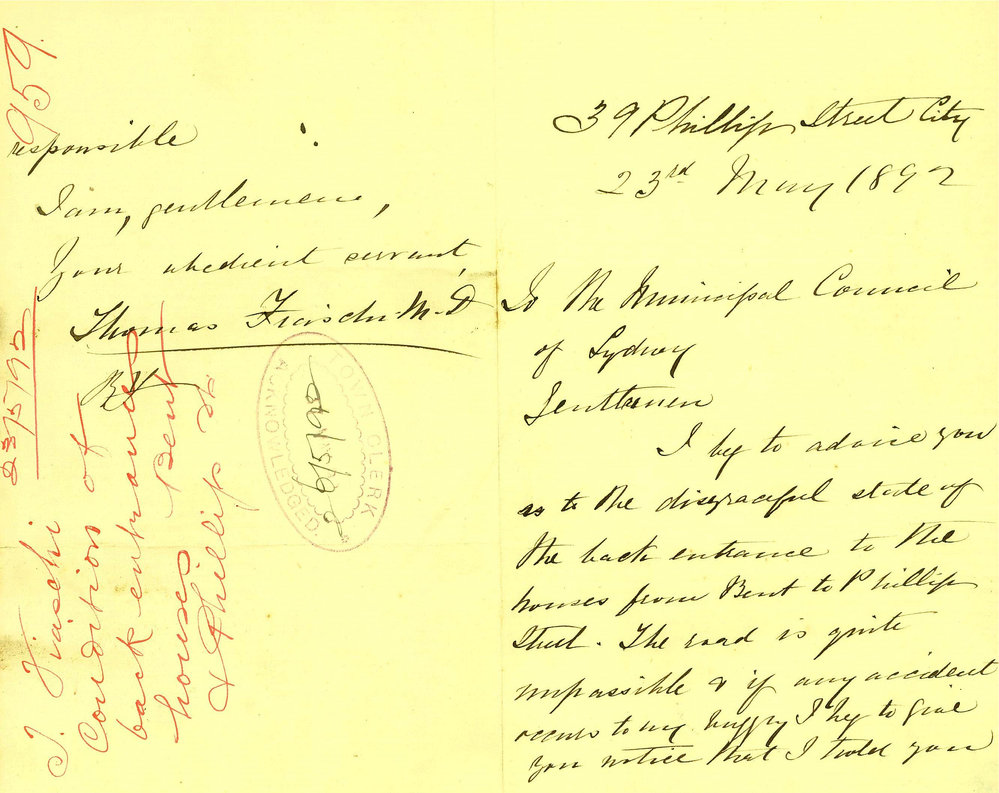 39 Phillip Street City
23rd May 1892
To the Municipal Council
of Sydney
Gentlemen
I beg to advice you
as to the disgraceful state of
the back entrance to the
houses from Bent to Phillip
Street. The road is quite
impassible & if any accident
occurs to my buggy I beg to give
you notice that I hold you
responsible.
I am, gentlemen,
Your obedient servant,
Thomas Fiaschi M.D
959.
23/5/92
T. Fiaschi
Condition of
back entrance
houses Bent
& Phillip St
TOWN CLERK
ACKNOWLEDGED